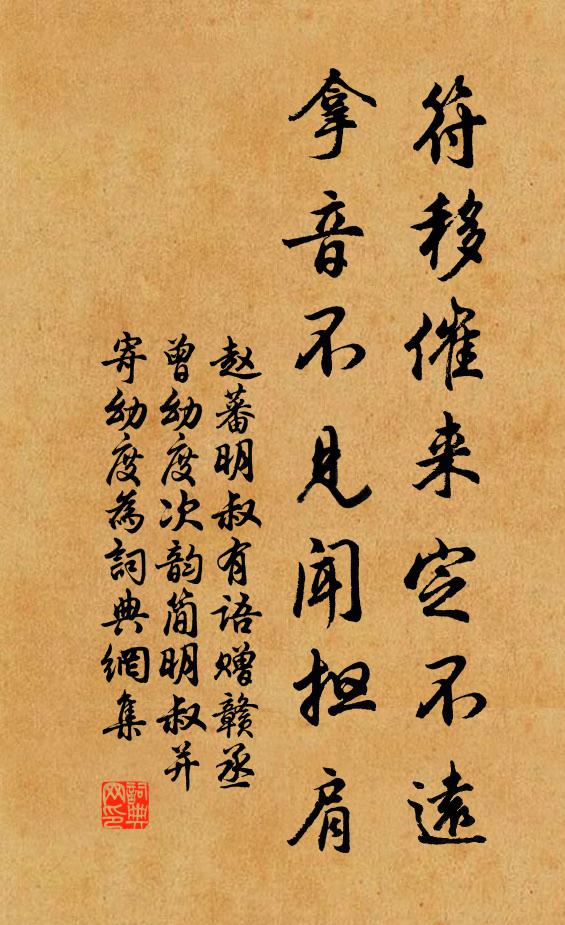 符移催来定不遠
拿音不見闻担肩
赵蕃明叔有语赠赣丞
曾幼度次韵简明叔并
寄幼度為詞典網集
詞典
网印